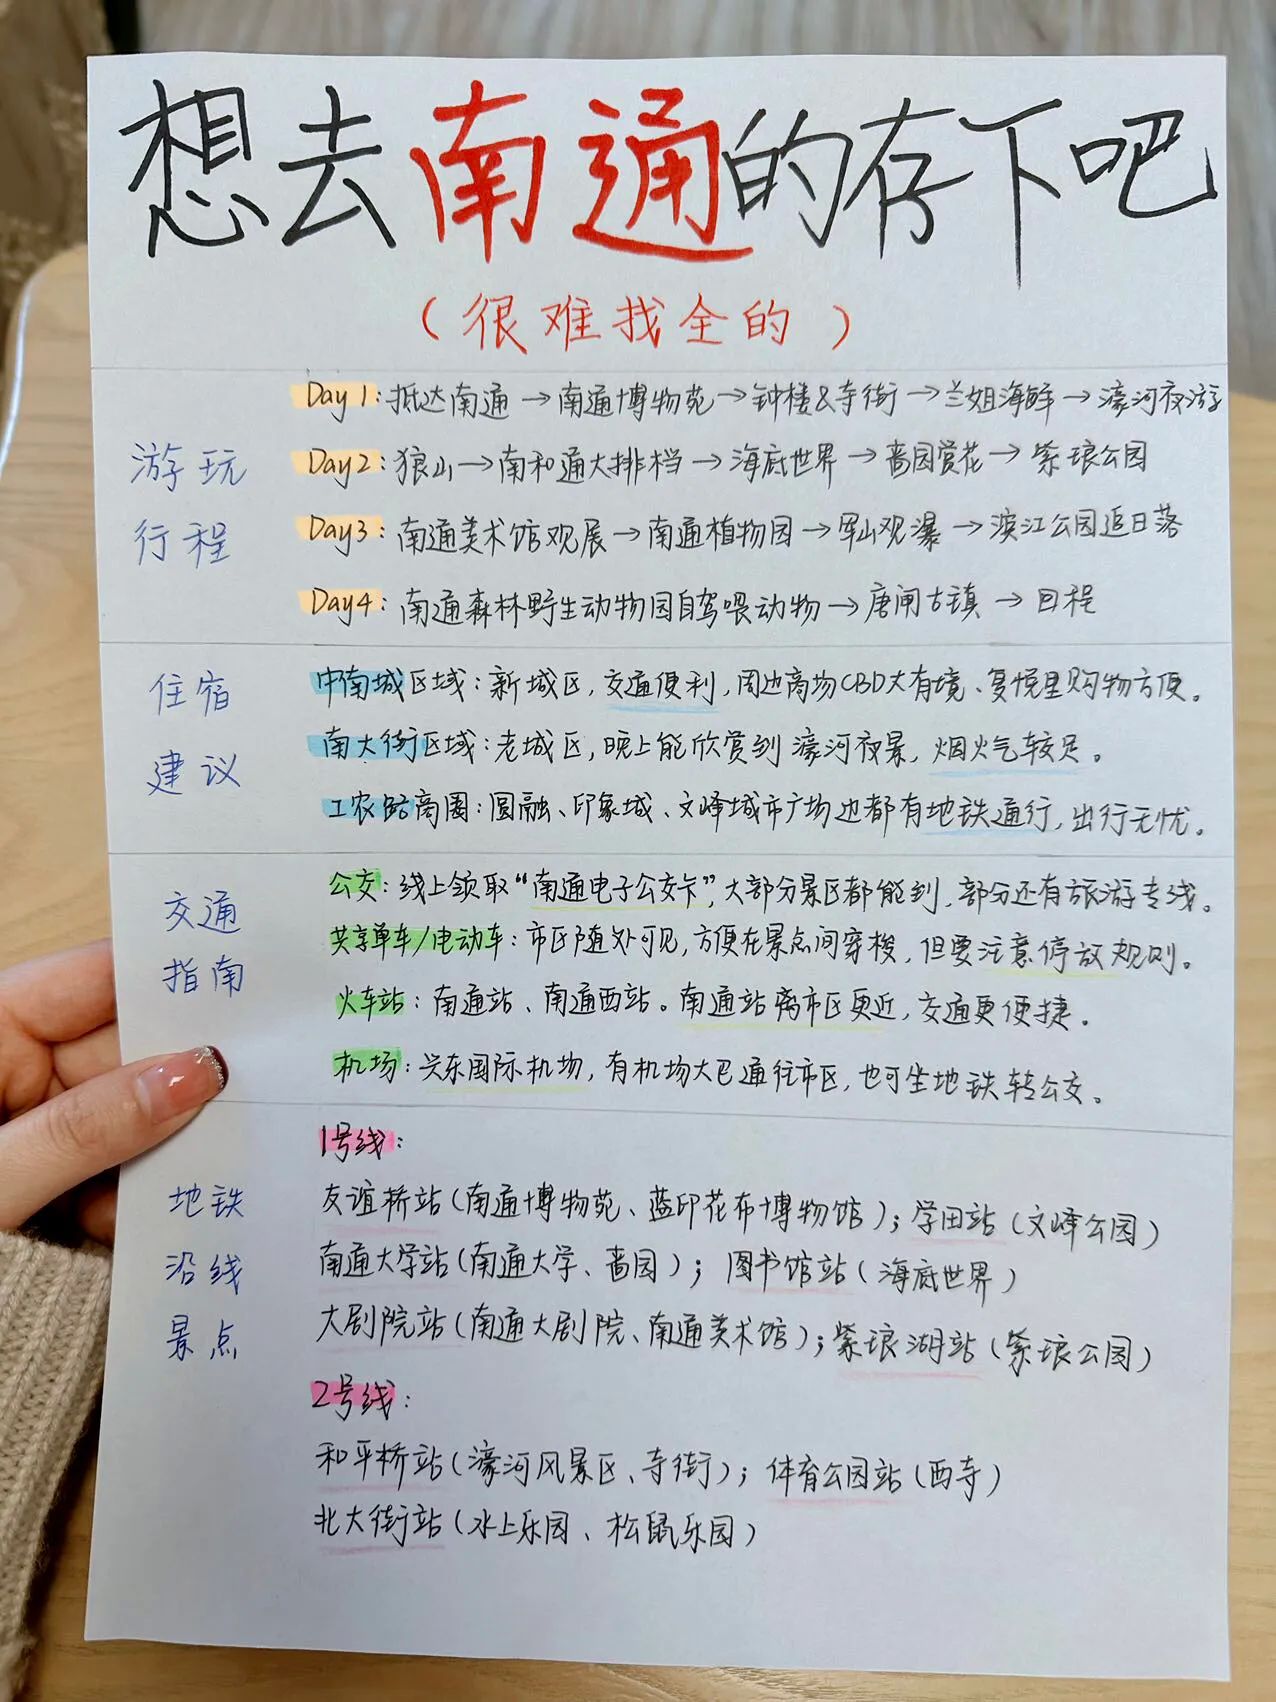 想去南通的存下吧
（很难找全的）
游玩行程
Day1：抵达南通→南通博物苑→钟楼&寺街→兰姐海鲜→濠河夜游
Day2：狼山→南和通大排档→海底世界→啬园赏花→紫琅公园
Day3：南通美术馆观展→南通植物园→军山观瀑→滨江公园追日落
Day4：南通森林野生动物园自驾喂动物→唐闸古镇→回程
住宿建议
中南城区域：新城区，交通便利，周边商场CBD大有境、复悦里购物方便。
南大街区域：老城区，晚上能欣赏到濠河夜景，烟火气较足。
工农路商圈：圆融、印象城、文峰城市广场边都有地铁通行，出行无忧。
交通指南
公交：线上领取“南通电子公交卡”，大部分景区都能到，部分还有旅游专线。
共享单车/电动车：市区随处可见，方便在景点间穿梭，但要注意停放规则。
火车站：南通站、南通西站。南通站离市区更近，交通更便捷。
机场：兴东国际机场，有机场大巴通往市区，也可坐地铁转公交。
地铁沿线景点
1号线：
友谊桥站（南通博物苑、蓝印花布博物馆）；学田站（文峰公园）
南通大学站（南通大学、啬园）；图书馆站（海底世界）
大剧院站（南通大剧院、南通美术馆）；紫琅湖站（紫琅公园）
2号线：
和平桥站（濠河风景区、寺街）；体育公园站（西寺）
北大街站（水上乐园、松鼠乐园）